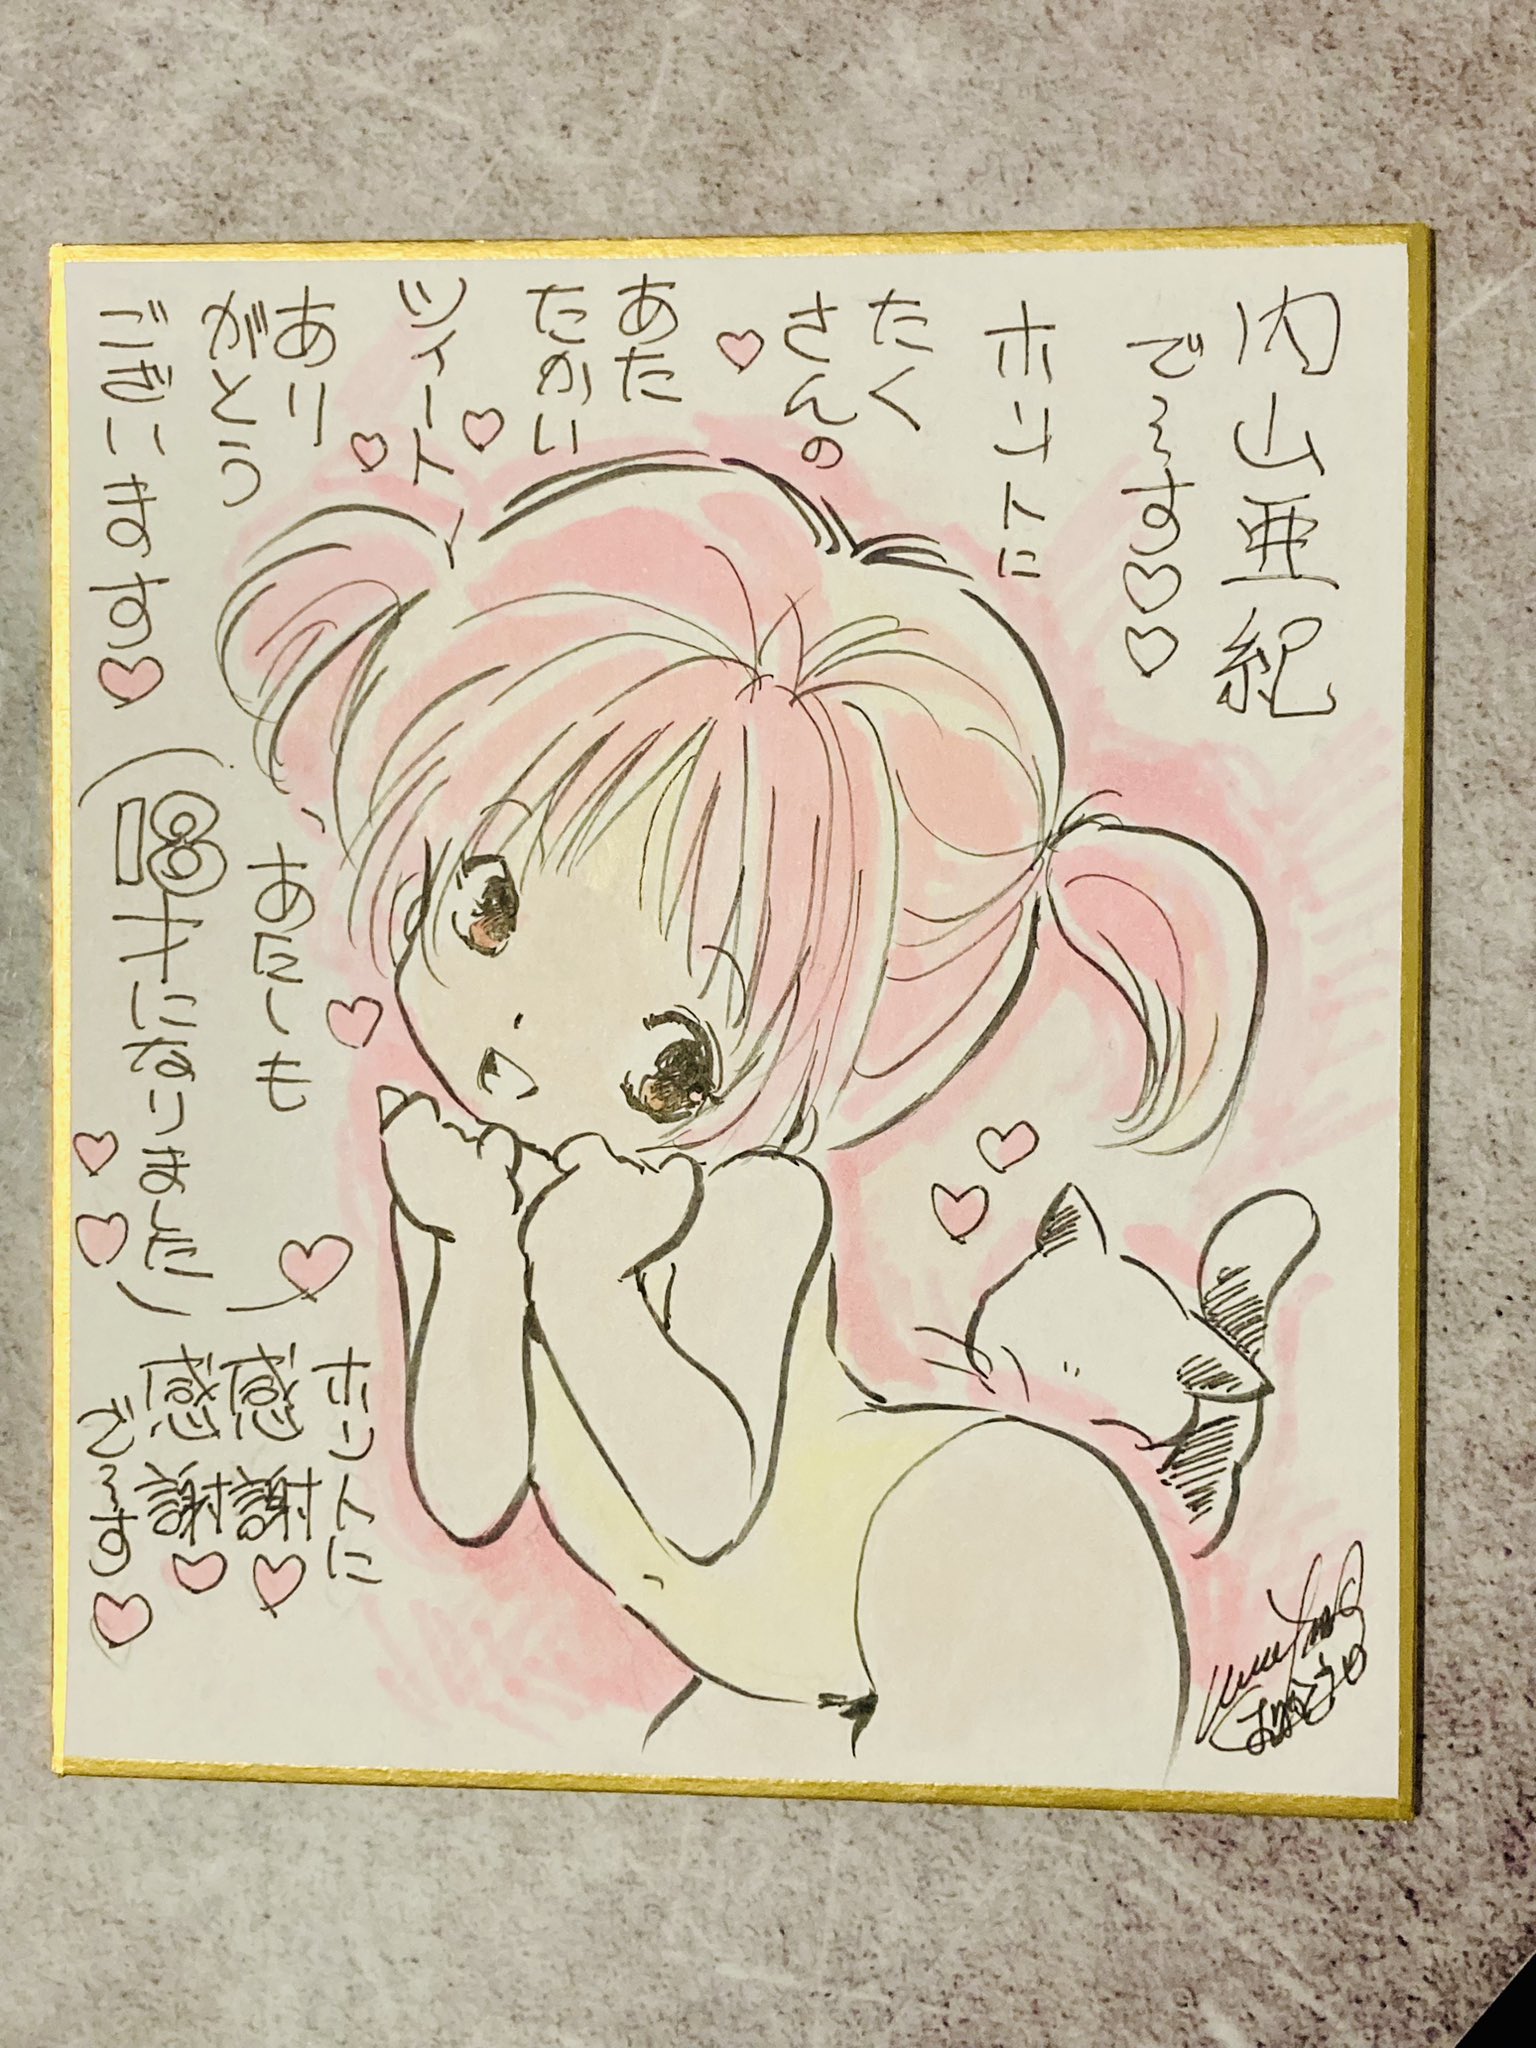 内山亜紀
でーす♡♡
ホントに
たく
さんの
♡
あた
たかい
ツイート
♡♡
あり
がとう
ございます♡
あたしも
(18才になりました)
♡♡
♡
ホントに
感謝♡
感謝♡
でーす♡